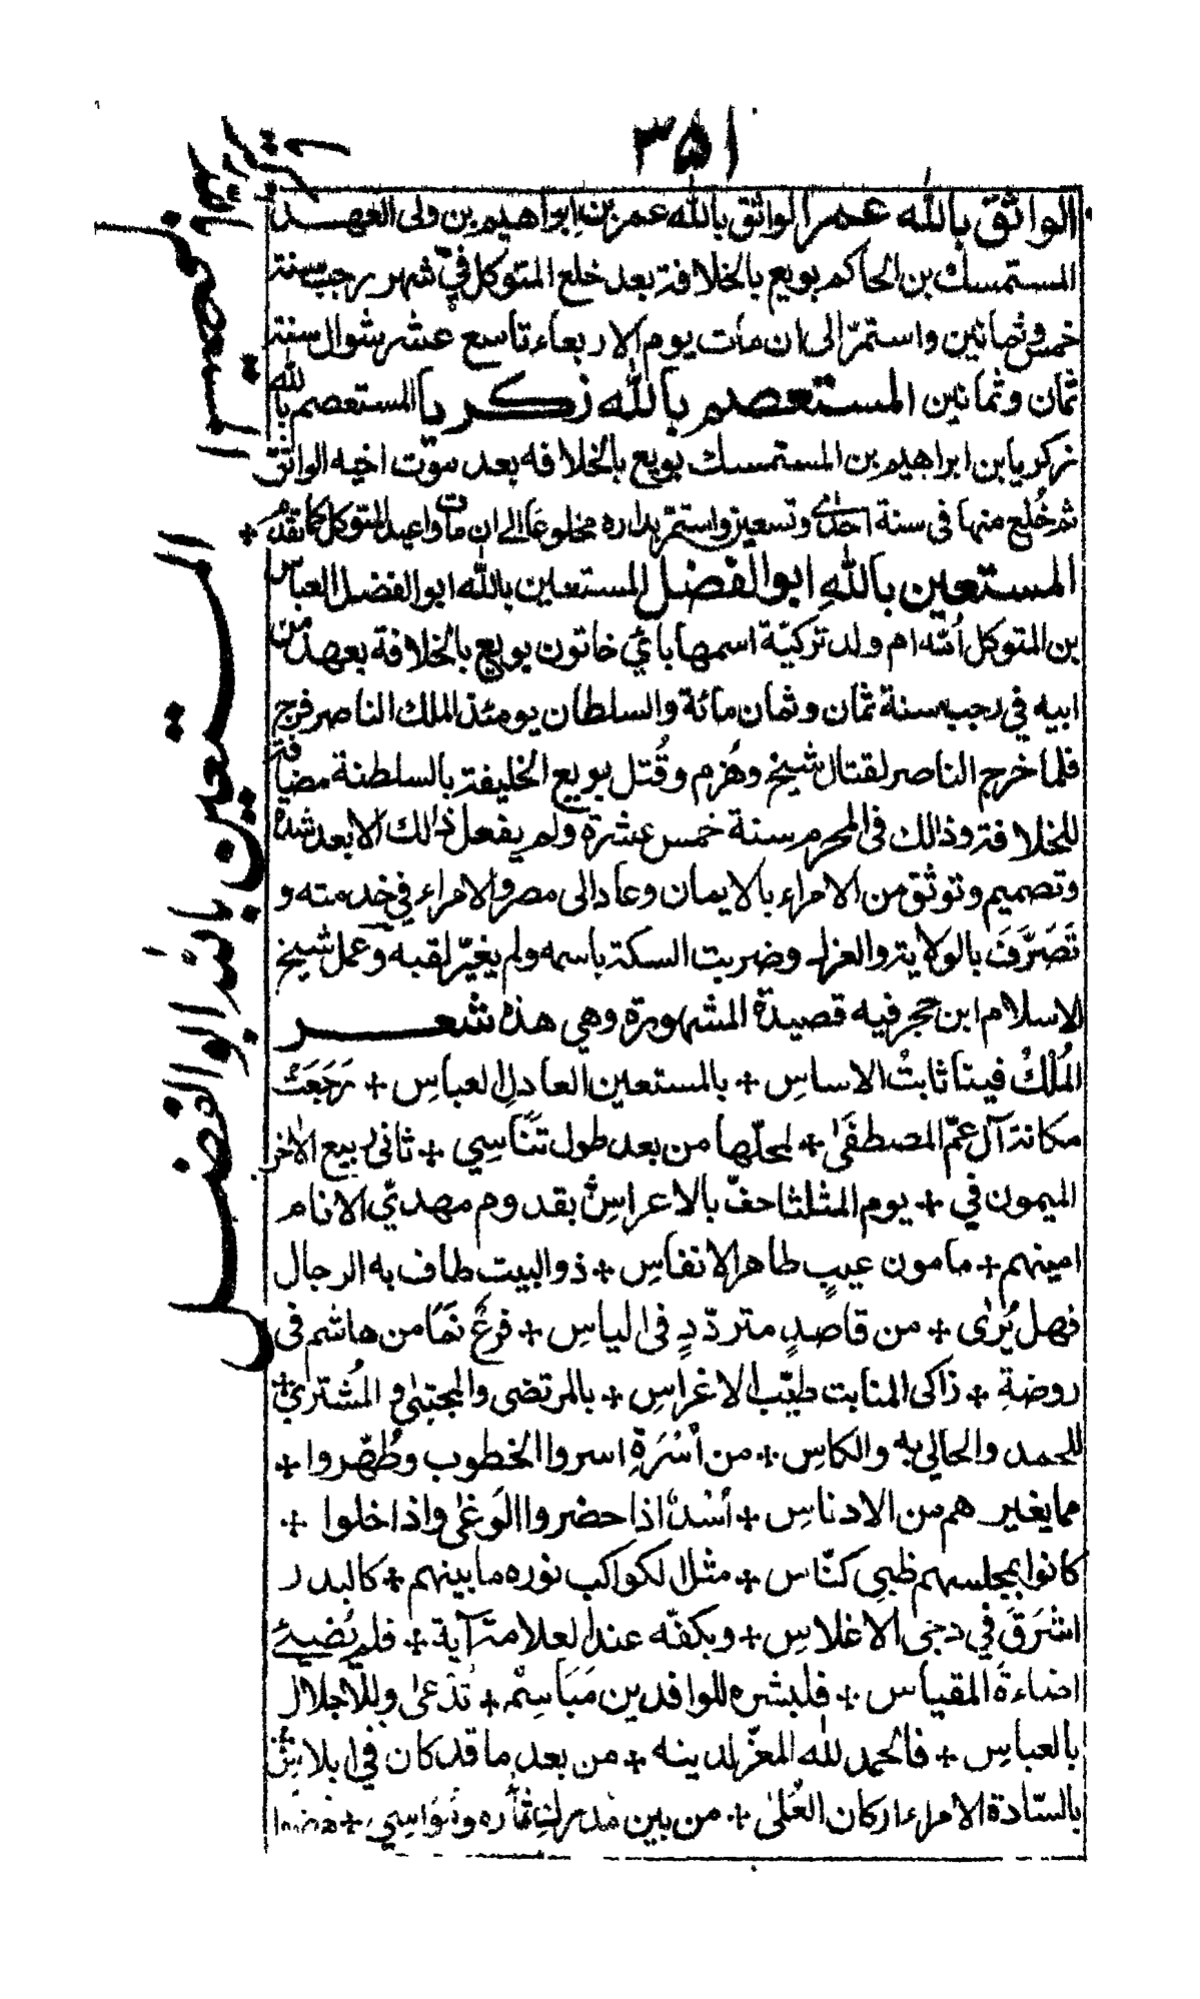 ٣٥١
الواثق بالله عمر الواثق بالله عمر بن ابراهيم بن ولى العهد
المستمسك بن الحاكم بويع بالخلافة بعد خلع المتوكل في شهر رجب سنة
خمس وثمانين واستمرّ الى ان مات يوم الاربعاء تاسع عشر شوال سنة
ثمان وثمانين المستعصم بالله زكريا المستعصم بالله
زكريا بن ابراهيم بن المستمسك بويع بالخلافه بعد موت اخيه الواثق
ثم خُلع منها فى سنة احدى وتسعين واستمرّ بداره مخلوعا الى ان مات واعيد المتوكل كما تقدم +
المستعين باللهِ ابو الفضل المستعين بالله ابو الفضل العباس
بن المتوكل اُمّه ام ولد تركيّة اسمها باي خاتون بويع بالخلافة بعهد من
ابيه في رجب سنة ثمان وثمان مائة والسلطان يومئذ الملك الناصر فرج
فلما خرج الناصر لقتال شيخ وهُزم وقُتل بويع الخليفة بالسلطنة مضافة
للخلافة وذالك فى المحرم سنة خمس عشرة ولم يفعل ذالك الا بعد شدة
وتصميم وتوثق من الامراء بالايمان وعاد الى مصر والامراء في خدمته و
تَصَرَّفَ بالولاية والعزل وضربت السكة باسمه ولم يغيّر لقبه وعمل شيخ
الاسلام ابن حجر فيه قصيدة المشهورة وهي هذه شعر
المُلْكُ فينا ثابتُ الاساسِ + بالمستعين العادلِ العباسِ + رَجَعَتْ
مكانة آل عمّ المصطفَى + لمحلّها من بعد طول تَنَاسِي + ثانى ربيع الآخر
الميمون في + يوم الثلثا حفّ بالاعراسِ بقدوم مهديّ الانام
امينهم + مامون عيبٍ طاهر الانفاسِ + ذو البيت طاف به الرجال
فهل يُرٰى + من قاصدٍ متردّدٍ فى الياسِ + فرعٌ نَمَا من هاشم فى
روضةِ + زاكى المنابت طيّب الاغراسِ + بالمرتضى والمجتبٰى و المُشترى +
للحمد والحالي به والكاسِ + من اُسْرَةٍ اسروا الخطوب وطُهّروا +
مما يغيرهم من الادناسِ + اُسْدٌ اذا حضروا الوَغٰى واذا خلوا +
كانوا بمجلسهم ظبي كنّاس + مثل الكواكب نوره ما بينهم + كالبدر
اشْرَقَ في دجى الاغلاسِ + وبكفّه عند العلامة آية + قلم يُضيئ
اضاءةَ المقياس + فلبشره للوافدين مَبَاسِم + تُدْعى وللاجلال
بالعباسِ + فالحمد لله المعزّ لدينه + من بعد ما قد كان في ابلاسٍ
بالسّادة الامراء اركان العُلٰى + من بين مدرك ثاره ومُوَاسِي + نهضوا
المستعصم بالله زكريا
المستعين بالله ابو الفضل